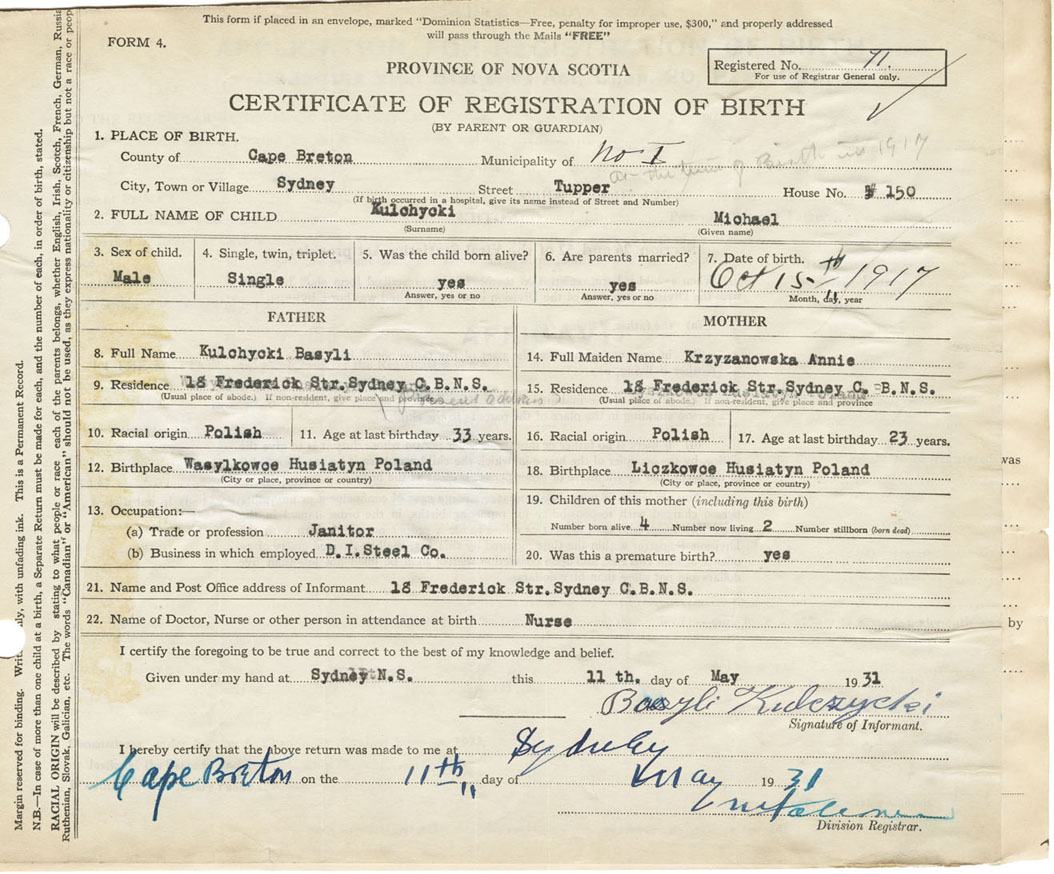 This form if placed in an envelope, marked "Dominion Statistics—Free, penalty for improper use, $300," and properly addressed
will pass through the Mails "FREE"
FORM 4.
Registered No. 71.
For use of Registrar General only.
PROVINCE OF NOVA SCOTIA
CERTIFICATE OF REGISTRATION OF BIRTH
(BY PARENT OR GUARDIAN)
1. PLACE OF BIRTH.
County of Cape Breton Municipality of No I
at the time of Birth in 1917
City, Town or Village Sydney Street Tupper House No. # 150
(If birth occurred in a hospital, give its name instead of Street and Number)
2. FULL NAME OF CHILD Kulchycki Michael
(Surname) (Given name)
3. Sex of child. 4. Single, twin, triplet. 5. Was the child born alive? 6. Are parents married? 7. Date of birth.
Male Single yes yes Oct 15th 1917
Answer, yes or no Answer, yes or no Month, day, year
FATHER MOTHER
8. Full Name Kulchycki Basyli 14. Full Maiden Name Krzyzanowska Annie
9. Residence 18 Frederick Str.Sydney C.B.N.S. 15. Residence 18 Frederick Str.Sydney C. B.N.S.
(Usual place of abode.) If non-resident, give place and province (Usual place of abode.) If non-resident, give place and province
present address
10. Racial origin Polish 11. Age at last birthday 33 years. 16. Racial origin Polish 17. Age at last birthday 23 years.
12. Birthplace Wasylkowce Husiatyn Poland 18. Birthplace Liczkowce Husiatyn Poland
(City or place, province or country) (City or place, province or country)
13. Occupation:— 19. Children of this mother (including this birth)
(a) Trade or profession Janitor Number born alive 4 Number now living 2 Number stillborn (born dead)
(b) Business in which employed D.I.Steel Co. 20. Was this a premature birth? yes
21. Name and Post Office address of Informant 18 Frederick Str.Sydney C.B.N.S.
22. Name of Doctor, Nurse or other person in attendance at birth Nurse
I certify the foregoing to be true and correct to the best of my knowledge and belief.
Given under my hand at Sydney N.S. this 11 th. day of May 1931
Basyli Kulczycki
Signature of Informant.
I hereby certify that the above return was made to me at Sydney
Cape Breton on the 11th day of May 1931
Division Registrar.
Margin reserved for binding. Write plainly, with unfading ink. This is a Permanent Record.
N.B.—In case of more than one child at a birth, a Separate Return must be made for each, and the number of each, in order of birth, stated.
RACIAL ORIGIN will be described by stating to what people or race each of the parents belongs, whether English, Irish, Scotch, French, German, Russian
Ruthenian, Slovak, Galician, etc. The words "Canadian" or "American" should not be used, as they express nationality or citizenship but not a race or people
was
by